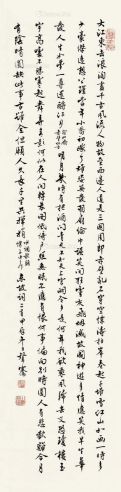 大江東去浪淘盡千古風流人物故壘西邊人道是三國周郎赤壁亂石穿空驚濤拍岸捲起千堆雪江山如畫一時多
少豪傑遙想公瑾當年小喬初嫁了雄姿英發羽扇綸巾談笑間檣櫓灰飛煙滅故國神遊多情應笑我早生華
髮人生如夢一尊還酹江月 明月幾時有把酒問青天不知天上宮闕今夕是何年我欲乘風歸去又恐瓊樓玉
宇高處不勝寒起舞弄清影何似在人間轉朱閣低綺戶照無眠不應有恨何事偏向別時圓人有悲歡離合月
有陰晴圓缺此事古難全但願人長久千里共嬋娟 坡詞二首